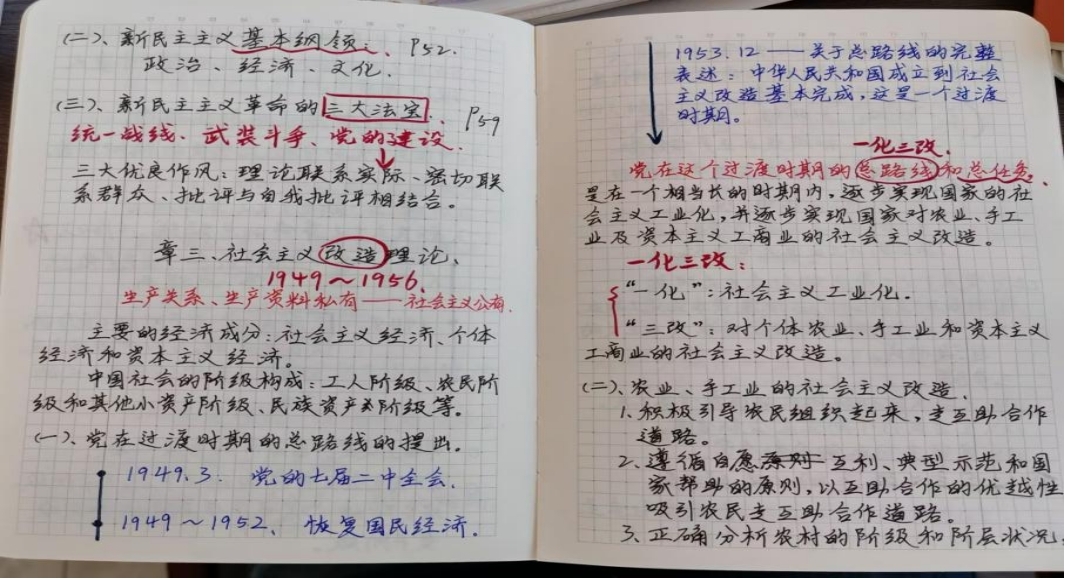 (二)、新民主主义基本纲领:、P52.
政治、经济、文化.
(三)、新民主主义革命的三大法宝、P59
统一战线、武装斗争、党的建设.
三大优良作风:理论联系实际、密切联
系群众、批评与自我批评相结合。
章三、社会主义改造理论、
1949~1956.
生产关系、生产资料私有——社会主义公有.
主要的经济成分:社会主义经济、个体
经济和资本主义经济。
中国社会的阶级构成:工人阶级、农民阶
级和其他小资产阶级、民族资产阶级等。
(一)、党在过渡时期的总路线的提出.
1949.3. 党的七届二中全会.
1949~1952、恢复国民经济.
1953.12——关于总路线的完整
表述:中华人民共和国成立到社会
主义改造基本完成,这是一个过渡
时期。
一化三改.
党在这个过渡时期的总路线和总任务,
是在一个相当长的时期内,逐步实现国家的社
会主义工业化,并逐步实现国家对农业、手工
业及资本主义工商业的社会主义改造。
一化三改:
“一化”:社会主义工业化.
“三改”:对个体农业、手工业和资本主义
工商业的社会主义改造。
(二)、农业、手工业的社会主义改造.
1.积极引导农民组织起来,走互助合作
道路。
2.遵循自愿原则互利、典型示范和国
家帮助的原则,以互助合作的优越性
吸引农民走互助合作道路。
3.正确分析农村的阶级和阶层状况,